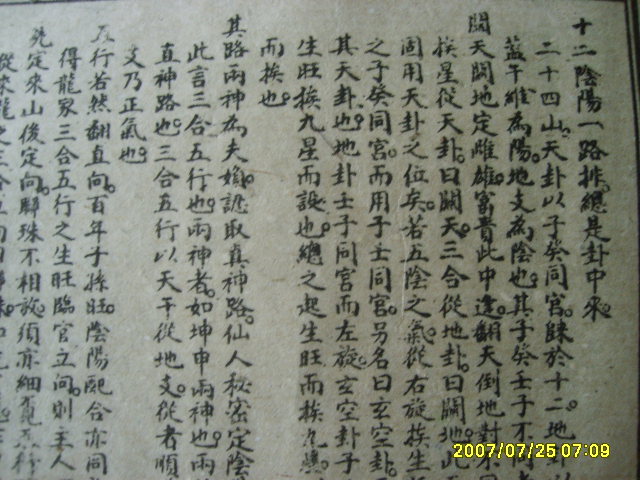 十二陰陽一路排。總是卦中來。
二十四山。天卦以子癸同宮。歸於十二。地卦以
蓋干維為陽。地支為陰也。其子癸壬子不同
關天關地定雌雄。富貴此中逢。翻天倒地對不同
挨星從天卦。曰關天。三合從地卦。曰關地。此
固用天卦之位矣。若五陰之氣。從右旋挨生
之子癸同宮。而用子壬同宮。另名曰玄空卦
其天卦也。地卦壬子同宮而左旋。玄空卦子
生旺挨九星而誤也。總之起生旺而挨九星
而挨也。
其路兩神為夫婦。認取真神路。仙人秘密定陰
此言三合五行也。兩神者。如坤申兩神也。兩
直神路也。三合五行以天干從地支。從者順
支乃正氣也。
五行若然翻直向。百年子孫旺。陰陽配合亦同
得龍家三合五行之生旺臨官立向。則主人
先定來山後定向。聯珠不相放。須亦細覓五行
從來龍之三合五向
2007/07/25 07:09